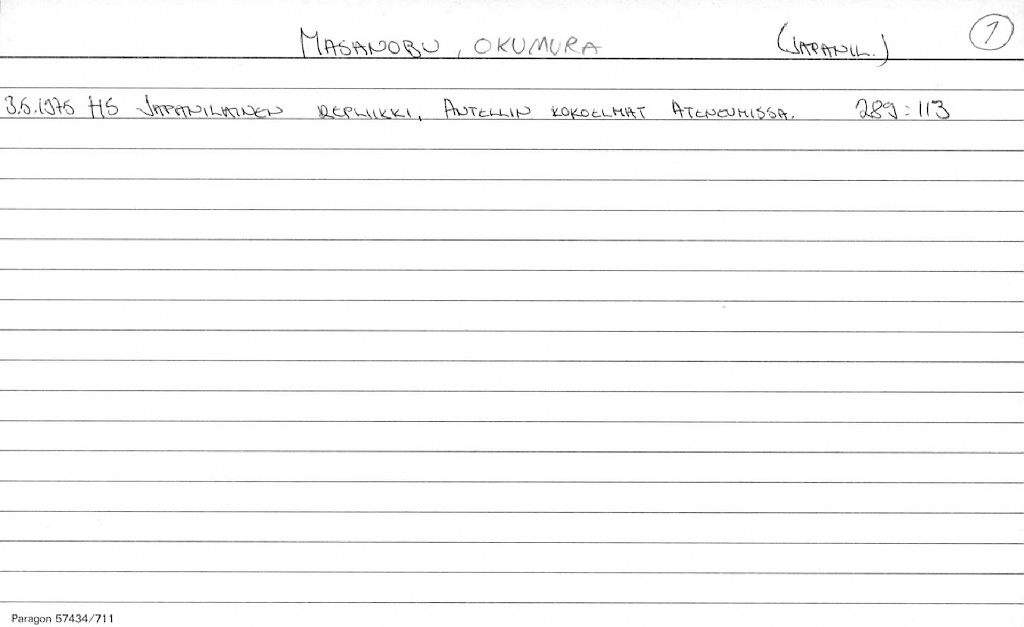 MASANOBU, OKUMURA (JAPANIL.) 1
3.5.1975 HS JAPANILAINEN REPLIIKKI, ANTELLIN KOKOELMAT ATENEUMISSA. 289:113
Paragon 57434/711